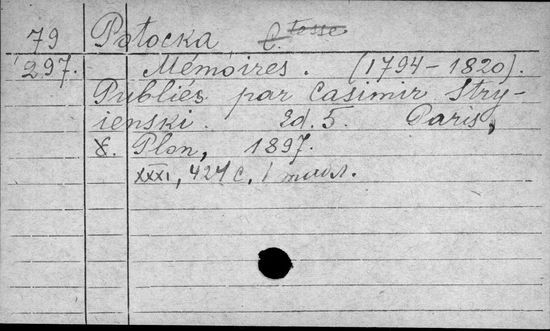 79 Potocka C. tesse
297. Mémoires. (1794-1820).
Publiés par Casimir Stry-
ienski. Ed. 5. Paris,
Plon, 1897.
XXXI, 424 с. 1 титл.